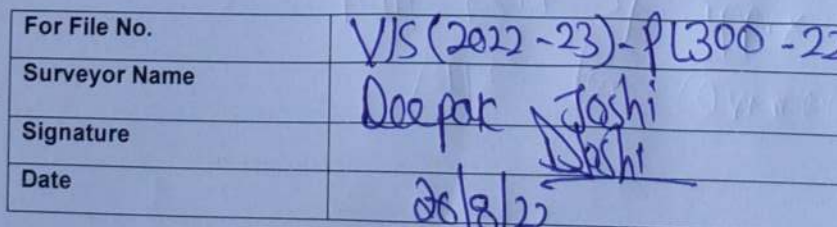 For File No. VIS(2022-23)-PL300-22
Surveyor Name Deepak Joshi
Signature Joshi
Date 26/8/22